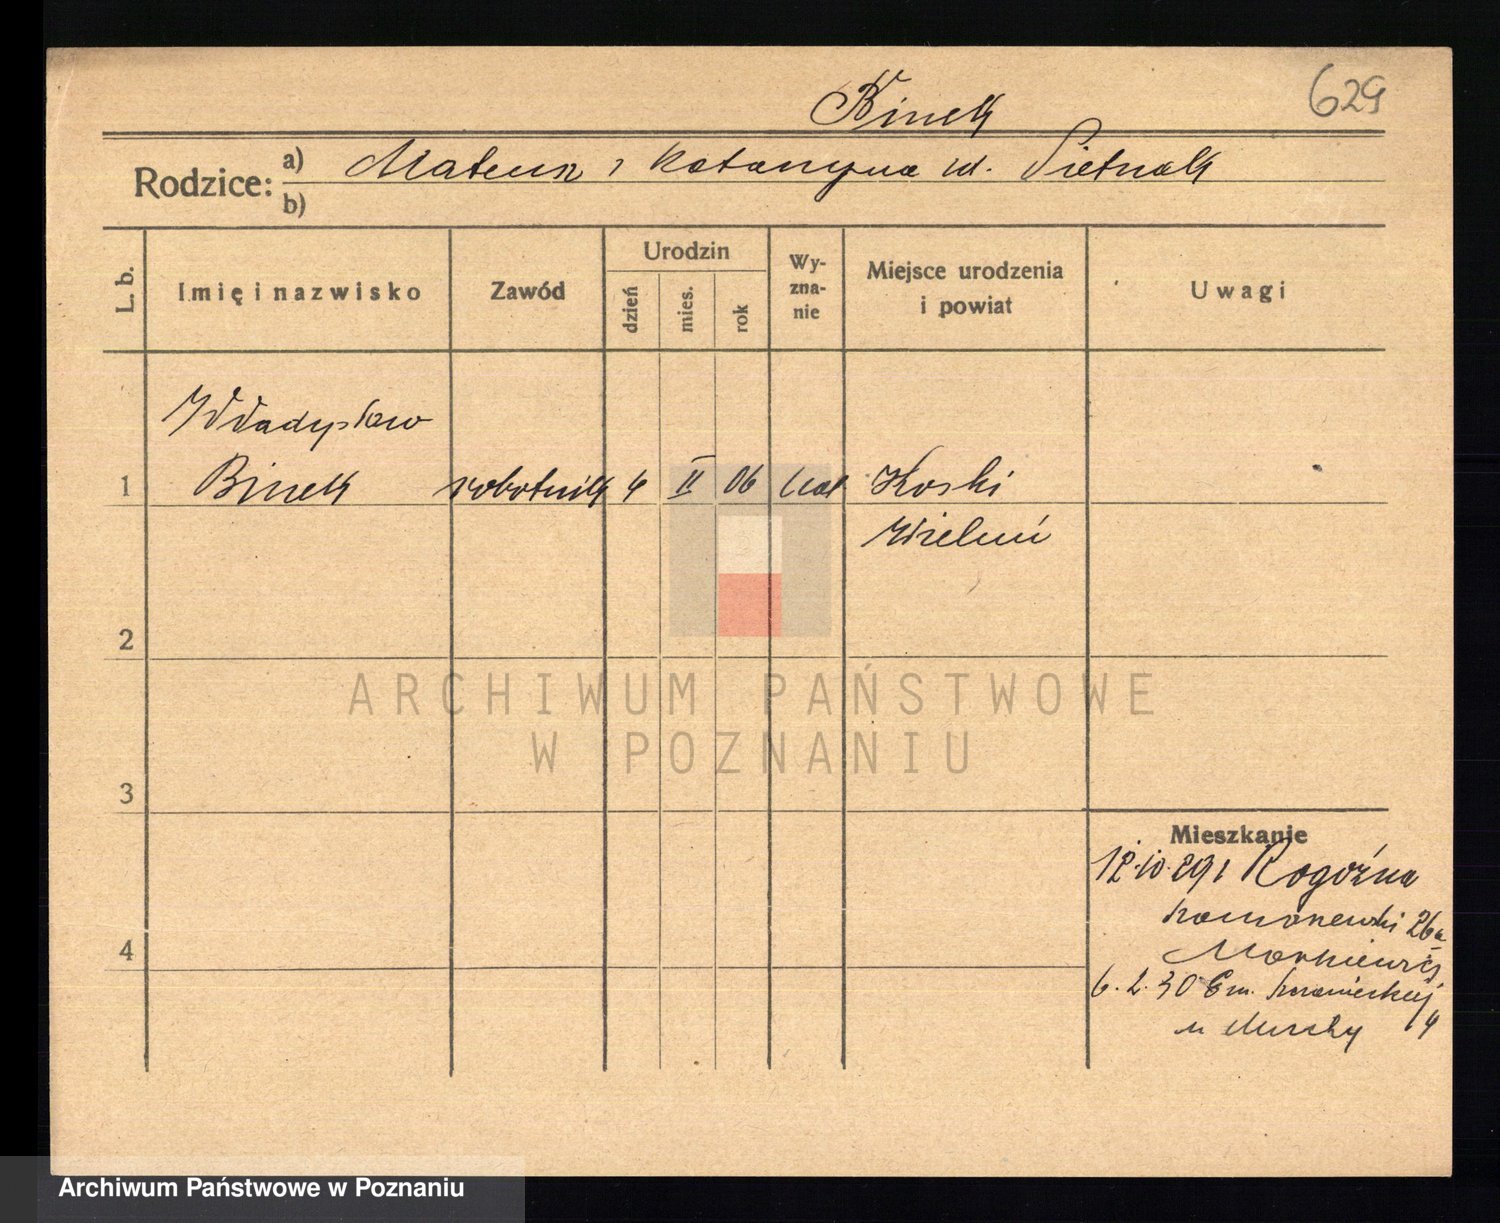 629
Binek
Rodzice:
a) Mateusz i Katarzyna ul. Pietrak
b)
L. b.
Imię i nazwisko
Zawód
Urodzin
dzień
mies.
rok
Wy-
zna-
nie
Miejsce urodzenia
i powiat
Uwagi
Władysław
1 Binek robotnik 4 II 06 kat Koski
Wieluń
2
3
4
Mieszkanie
12.10.29 Rogoźna
26a
Markiewicz
6.2.30
4
ARCHIWUM PAŃSTWOWE
W POZNANIU
Archiwum Państwowe w Poznaniu